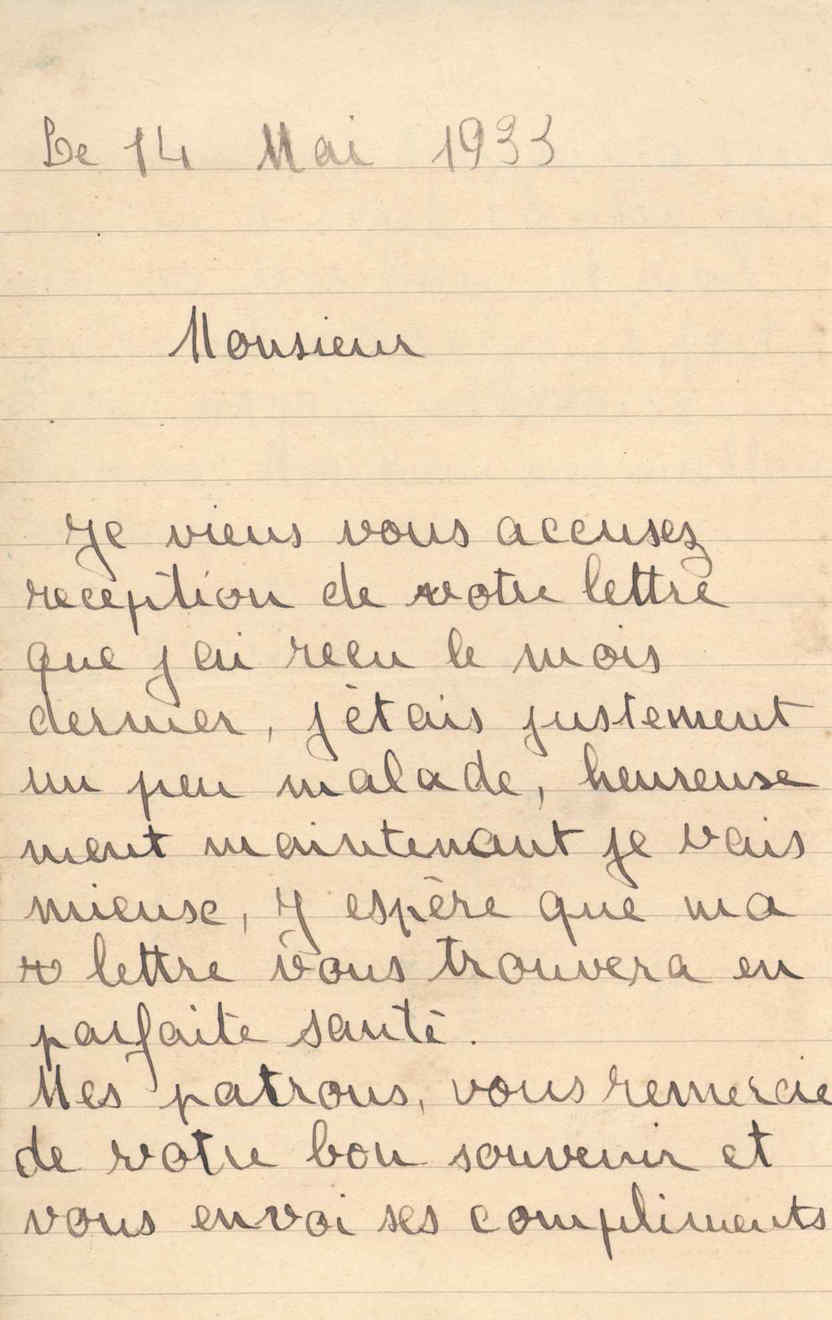 Le 14 Mai 1933
Monsieur
Je viens vous accusez
reception de votre lettre
que j ai recu le mois
dernier, j'ètais justement
un peu malade, heureuse
ment maintenant je vais
mieuse, J espère que ma
lettre vous trouvera en
parfaite santè.
Mes patrons, vous remercie
de votre bon souvenir et
vous envoi ses compliments